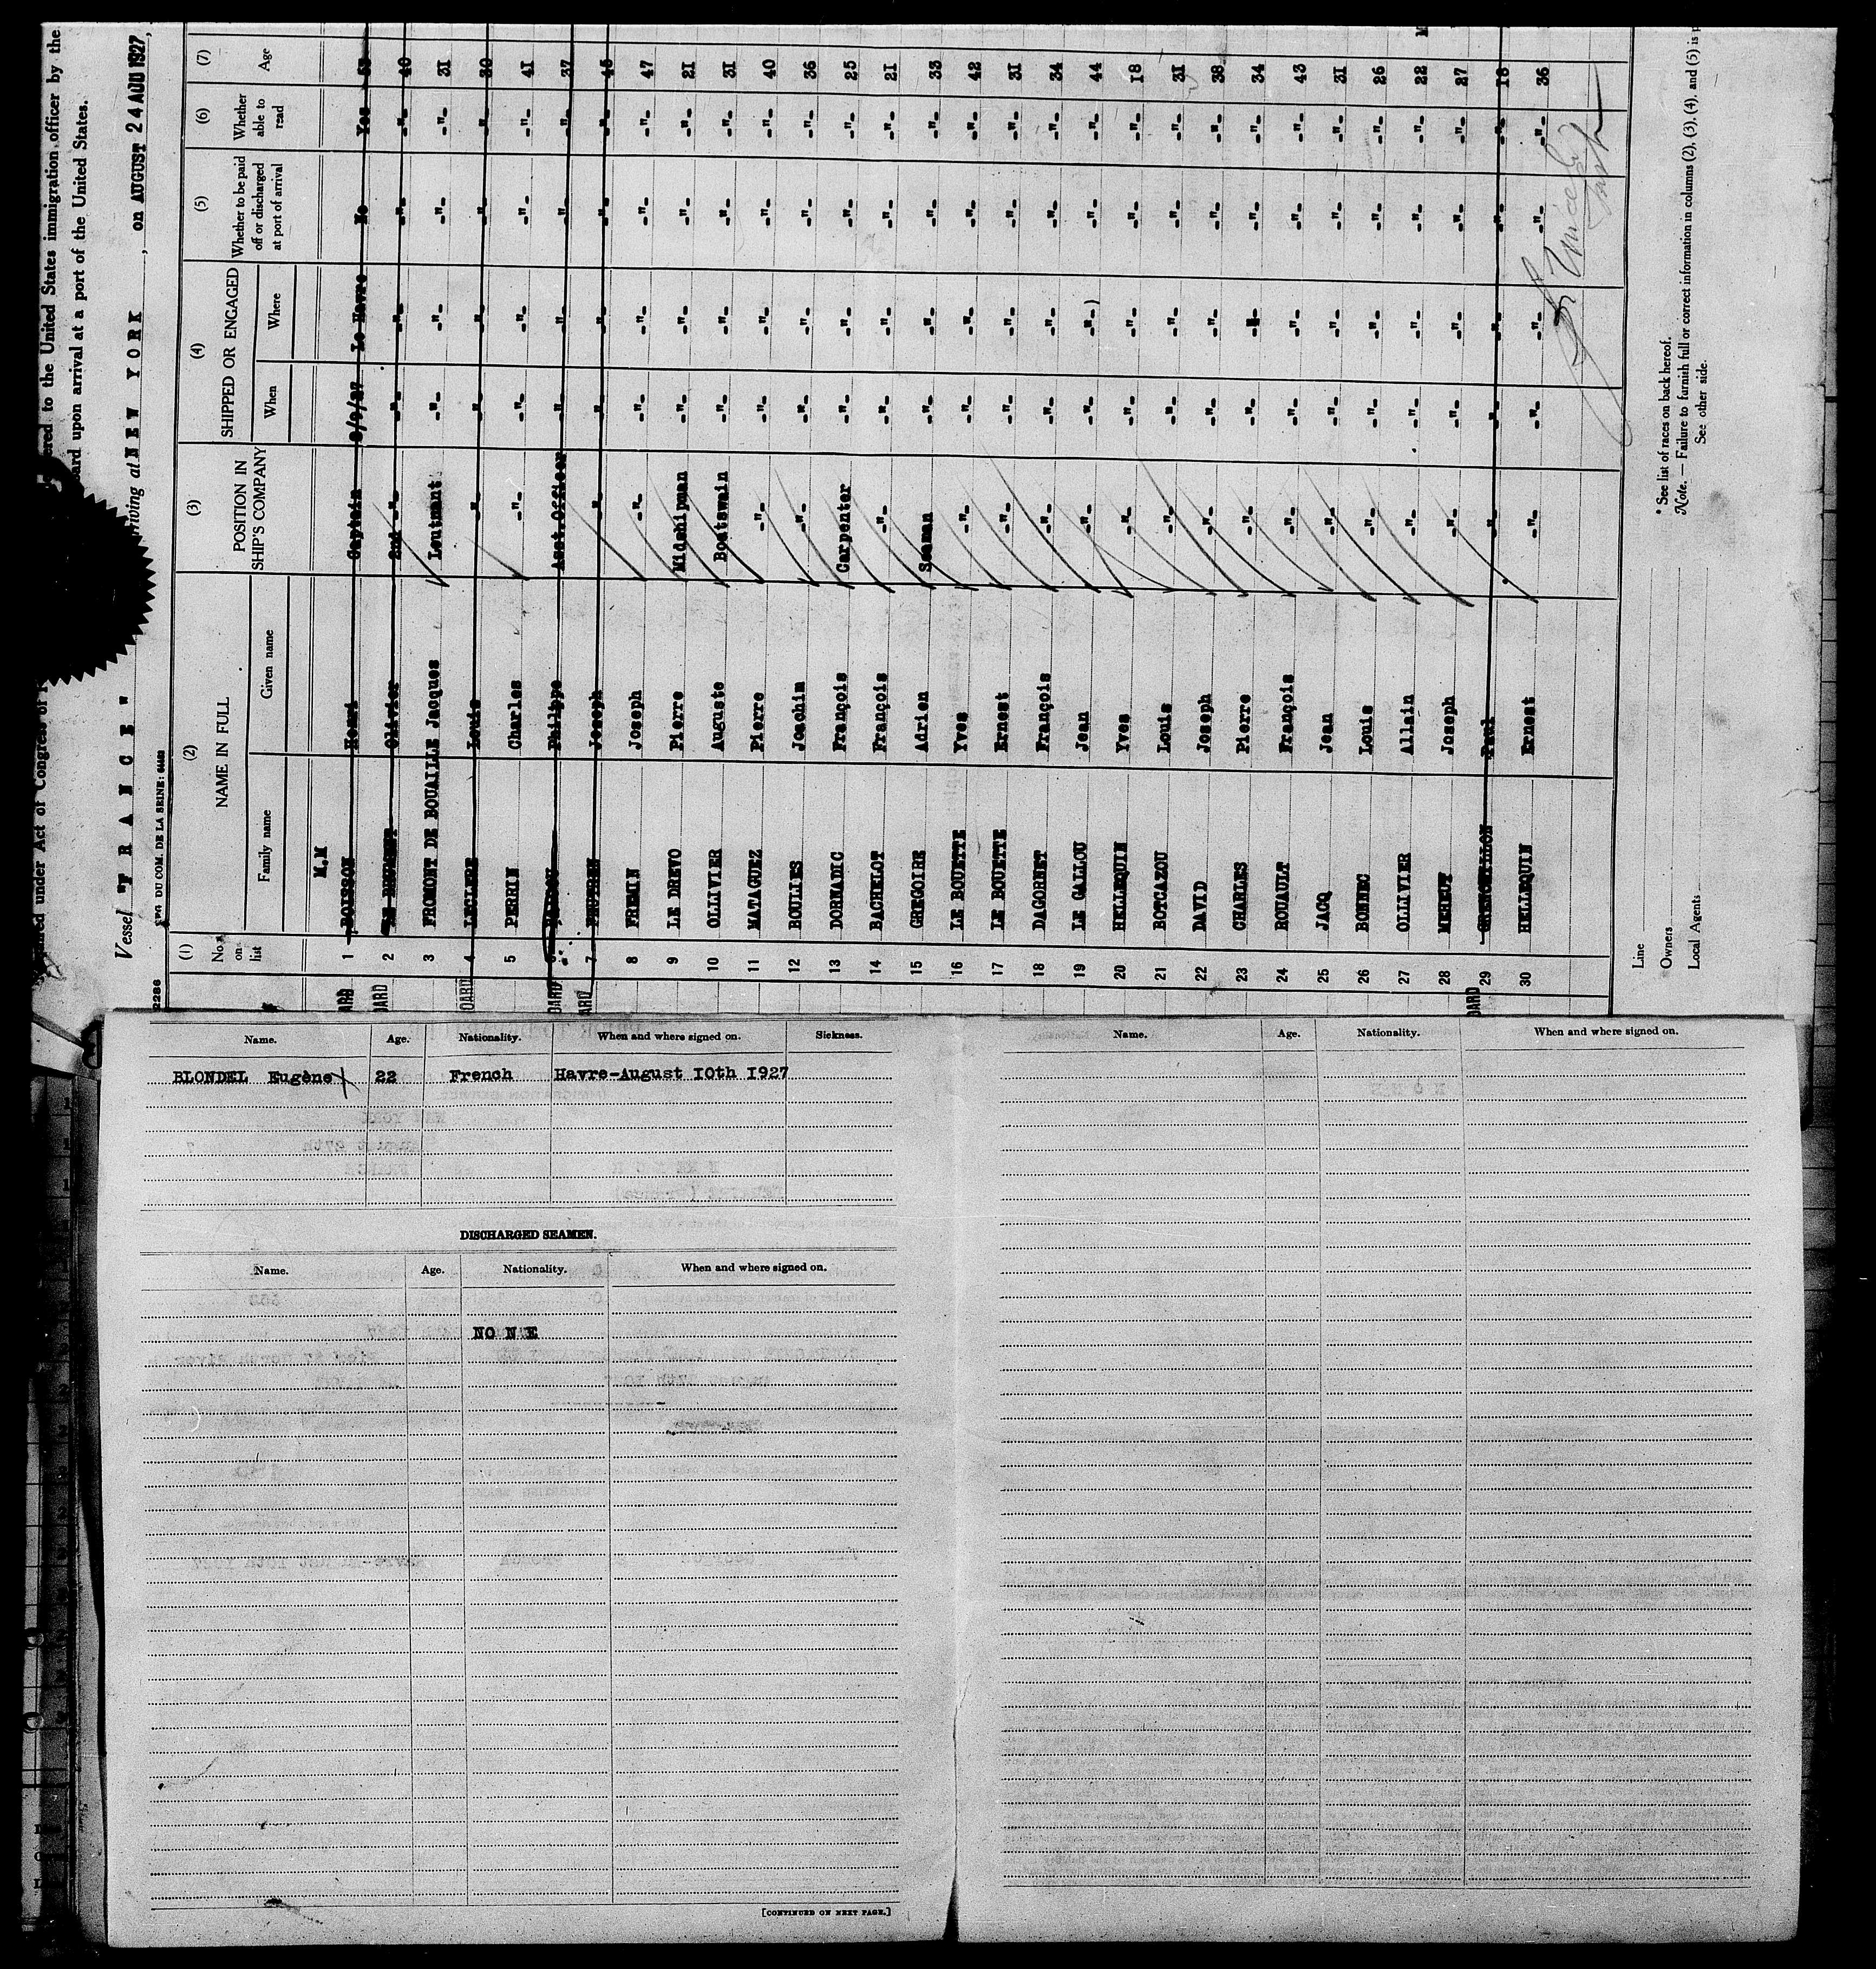 ered to the United States immigration officer by the
ard upon arrival at a port of the United States.
under Act of Congress of
Vessel "F R A N C E" arriving at NEW YORK, on AUGUST 24 AOU 1927,
2286
IPG DU COM. DE LA SEINE:
(1) (2) (3) (4) (5) (6) (7)
No. on list NAME IN FULL POSITION IN SHIP'S COMPANY SHIPPED OR ENGAGED Whether to be paid off or discharged at port of arrival Whether able to read Age
Family name Given name When Where
M.M
1 BOISSON Henri Captain 8/9/27 Le Havre No Yes 53
2 Olivier 2nd -"- -"- -"- -"- -"- 40
3 FROMONT DE BOUAILLE Jacques Leutnant -"- -"- -"- -"- 31
4 LECLERE Louis -"- -"- -"- -"- -"- 30
5 PERRIN Charles -"- -"- -"- -"- -"- 41
6 Philippe Asst.Officer -"- -"- -"- -"- 37
7 Joseph -"- -"- -"- -"- -"- 45
8 FREMIN Joseph -"- -"- -"- -"- -"- 47
9 LE DREVO Pierre Midshipman -"- -"- -"- -"- 21
10 OLLIVIER Auguste Boatswain -"- -"- -"- -"- 31
11 MATAGUEZ Pierre -"- -"- -"- -"- -"- 40
12 BOULIES Joachim -"- -"- -"- -"- -"- 36
13 DORNADIC François Carpenter -"- -"- -"- -"- 25
14 BACHELOT François -"- -"- -"- -"- -"- 21
15 GREGOIRE Adrien Seaman -"- -"- -"- -"- 33
16 LE BOUETTE Yves -"- -"- -"- -"- -"- 42
17 LE BOUETTE Ernest -"- -"- -"- -"- -"- 31
18 DAGORNET François -"- -"- -"- -"- -"- 34
19 LE GALLOU Jean -"- -"- -"- -"- -"- 44
20 HELLEQUIN Yves -"- -"- -"- -"- -"- 18
21 BOTCAZOU Louis -"- -"- -"- -"- -"- 31
22 DAVID Joseph -"- -"- -"- -"- -"- 38
23 CHARLES Pierre -"- -"- -"- -"- -"- 34
24 ROUAULT François -"- -"- -"- -"- -"- 43
25 JACQ Jean -"- -"- -"- -"- -"- 31
26 BONNEC Louis -"- -"- -"- -"- -"- 26
27 OLLIVIER Allain -"- -"- -"- -"- -"- 22
28 MEHEUT Joseph -"- -"- -"- -"- -"- 27
29 Paul -"- -"- -"- -"- -"- 18
30 HELLEQUIN Ernest -"- -"- -"- -"- -"- 36
Line
Owners
Local Agents
* See list of races on back hereof.
Note. — Failure to furnish full or correct information in columns (2), (3), (4), and (5) is p
See other side.
Name. Age. Nationality. When and where signed on. Sickness.
BLONDEL Eugène 22 French Havre-August 10th 1927
DISCHARGED SEAMEN.
Name. Age. Nationality. When and where signed on.
NO N E
[CONTINUED ON NEXT PAGE.]
Name. Age. Nationality. When and where signed on.